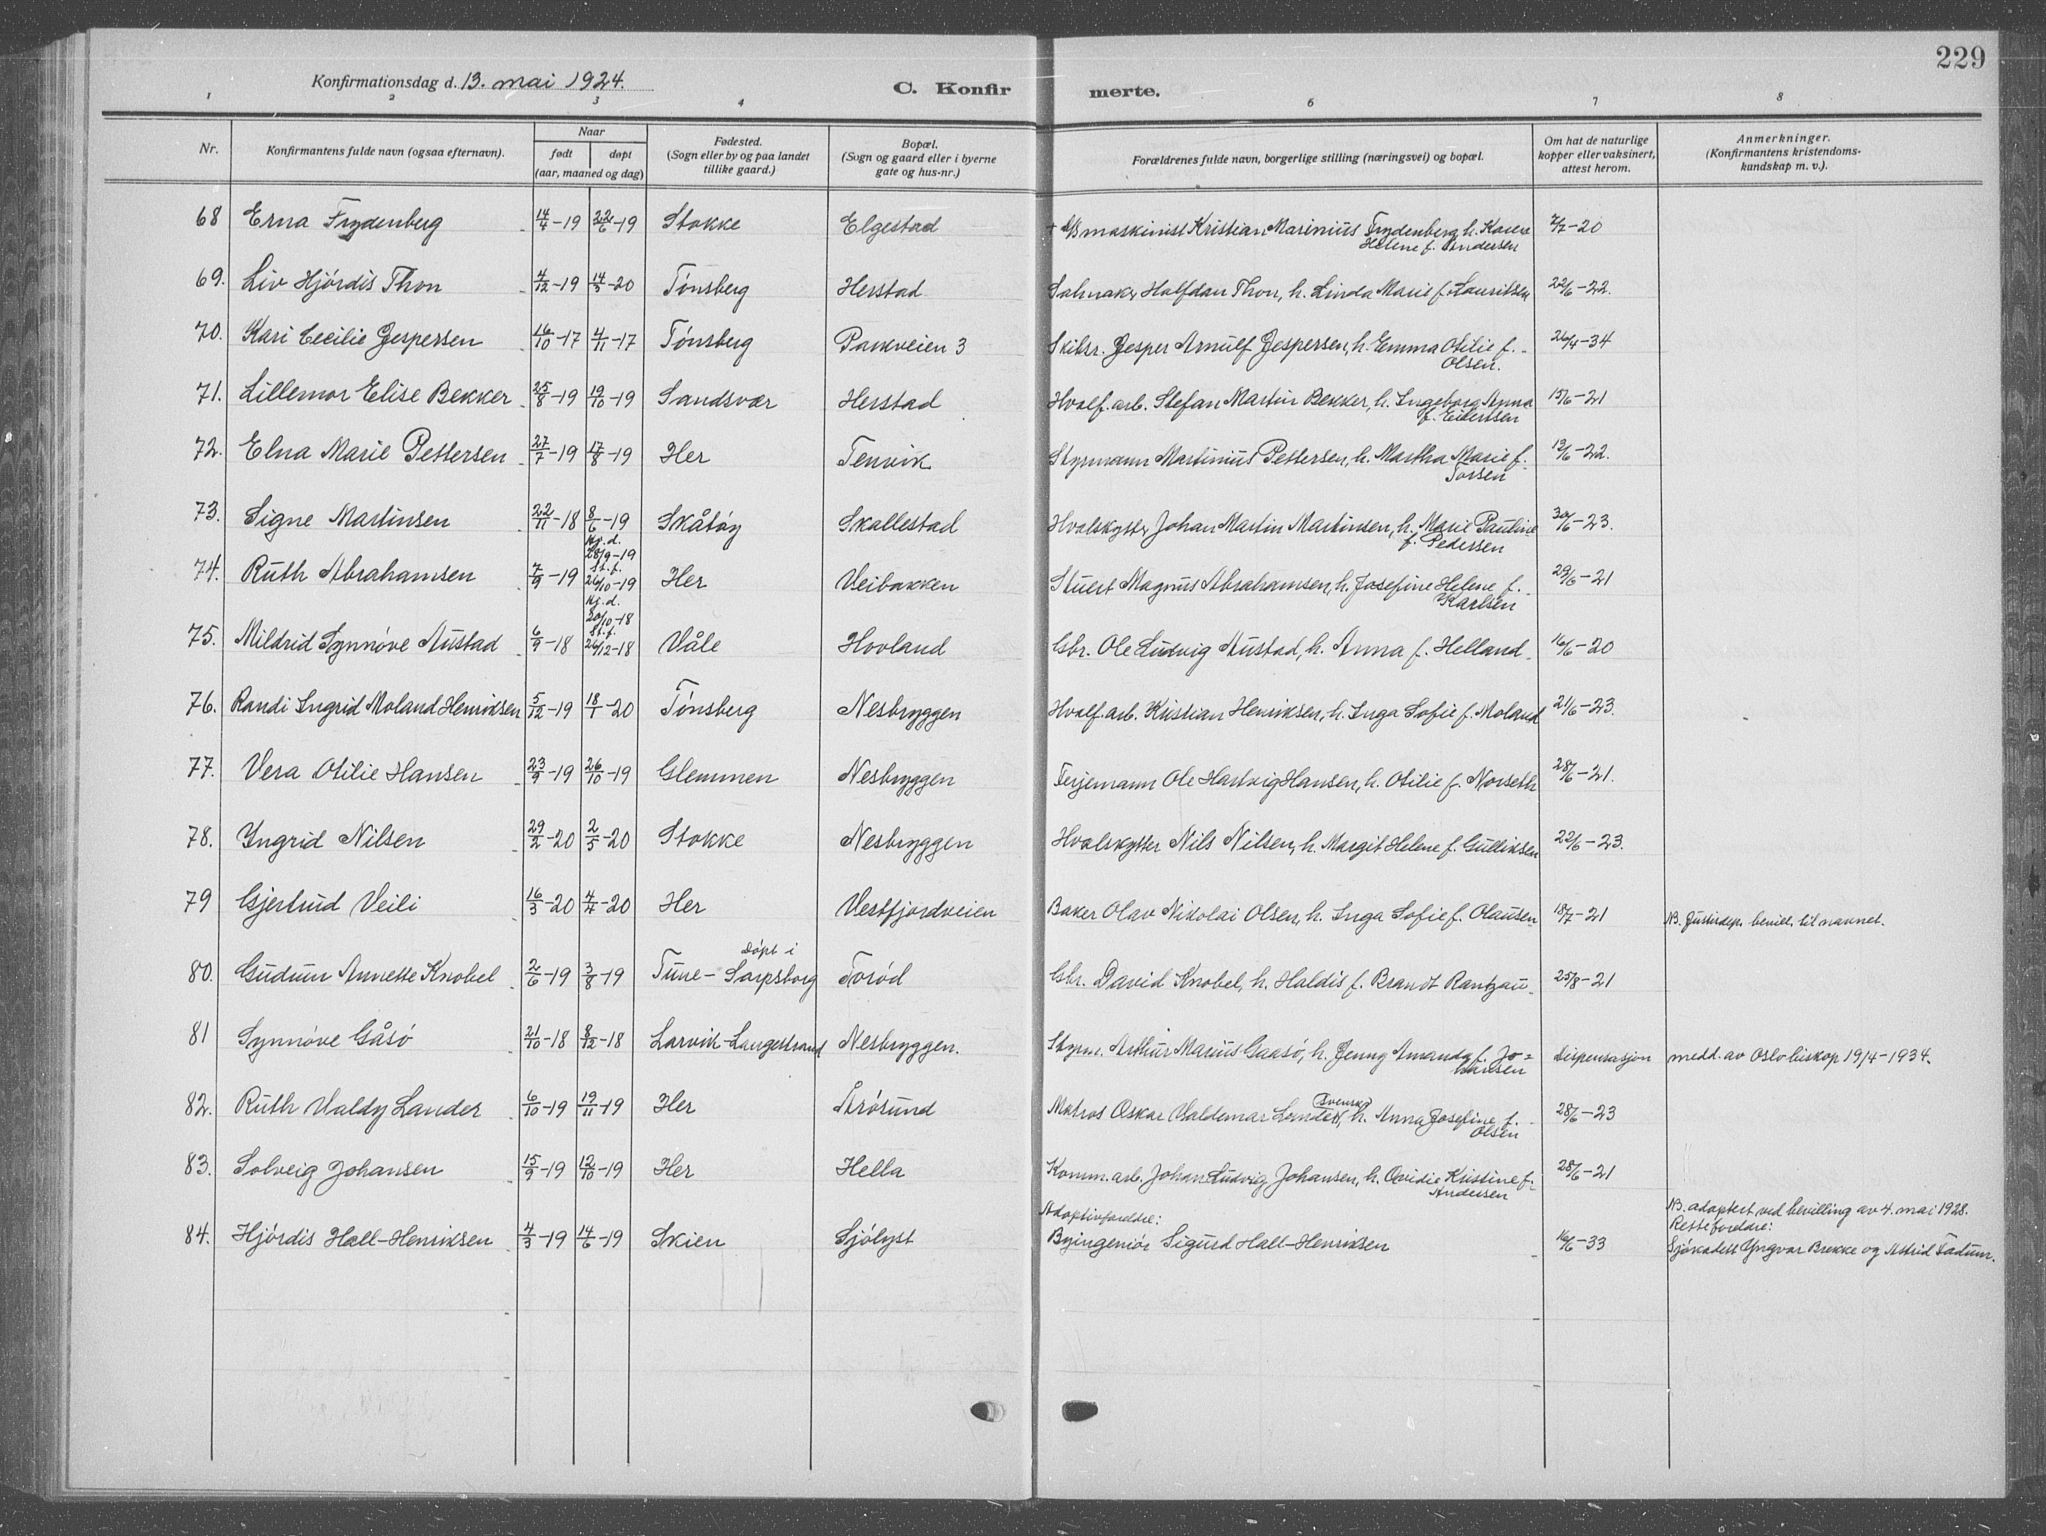 229
Konfirmationsdag d. 13. mai 1924. C. Konfir merte.
1 2 3 4 6 7 8
Nr. Konfirmantens fulde navn (ogsaa efternavn). Naar født døpt (aar, maaned og dag) Fødested. (Sogn eller by og paa landet tillike gaard.) Bopæl. (Sogn og gaard eller i byerne gate og hus-nr.) Forældrenes fulde navn, borgerlige stilling (næringsvei) og bopæl. Om hat de naturlige kopper eller vaksinert, attest herom. Anmerkninger. (Konfirmantens kristendoms-kundskap m. v.).
68 Erna Frydenberg 14/4-19 22/6-19 Stokke Elgestad + maskinist Kristian Marinius Frydenberg, h. Karen 7/7-20
Helene f. Andersen
69. Liv Hjørdis Thon 4/12-19 14/3-20 Tønsberg Herstad Salmaker Halfdan Thon, h. Linda Marie f. Lauritsen 22/6-22.
70. Kari Cecilie Jespersen 16/10-17 4/11-17 Tønsberg Parkveien 3 Skibsr. Jesper Arnulf Jespersen, h. Emma Otilie f. 26/4-34
Olsen.
71. Lillemor Elise Bekker 25/8-19 19/10-19 Sandsvær Herstad Hvalf. arb. Stefan Martin Bekker, h. Ingeborg Anna 15/6-21
f. Eilertsen
72. Elna Marie Pettersen 27/7-19 17/8-19 Her Tenvik Styrmann Martinius Pettersen, h. Martha Marie f. 19/6-22.
Torsen
73. Signe Martinsen 22/11-18 8/6-19 Skåtøy Skallestad Hvalskytter Johan Martin Martinsen, h. Marie Pauline 30/6-23.
f. Pedersen
Hj. d.
28/9-19
St. f.
74. Ruth Abrahamsen 7/9-19 26/10-19 Her Veibakken Stuert Magnus Abrahamsen, h. Josefine Helene f. 29/6-21
Karlsen
Hj. d.
20/10-18
St. f.
75. Mildrid Synnøve Austad 6/9-18 26/12-18 Våle Hovland Gbr. Ole Ludvig Austad, h. Anna f. Helland 16/6-20
76. Randi Ingrid Moland Henriksen 5/12-19 18/1-20 Tønsberg Nesbryggen Hvalf. arb. Kristian Henriksen, h. Inga Sofie f. Moland 21/6-23.
77. Vera Otilie Hansen 23/9-19 26/10-19 Glemmen Nesbryggen Ferjemann Ole Hartvig Hansen, h. Otilie f. Norseth 28/6-21.
78. Yngrid Nilsen 29/2-20 2/5-20 Stokke Nesbryggen Hvalskytter Nils Nilsen, h. Margit Helene f. Gulliksen 22/6-23.
79 Gjertrud Veili 16/3-20 4/4-20 Her Vestfjordveien Baker Olav Nikolai Olsen, h. Inga Sofie f. Olausen 18/7-21 NB. Justisdep. bevill. til navnet.
døpt i
80. Gudum Annette Knobel 2/6-19 3/8-19 Tune - Sarpsborg Torød Gbr. David Knobel, h. Haldis f. Brandt Rantzau 25/8-21
81 Synnøve Gåsø 21/10-18 8/12-18 Larvik-Langestrand Nesbryggen. Styrm. Arthur Marius Gaasø, h. Jenny Amanda f. Jo= Dispensasjon medd. av Oslo biskop 19/4-1934.
hansen
Svensk
82. Ruth Valdy Lander 6/10-19 19/11-19 Her Årøsund Matros Oskar Valdemar Lander, h. Anna Josefine f. 28/6-23
Olsen
83. Solveig Johansen 15/9-19 12/10-19 Her Hella Komm. arb. Johan Ludvig Johansen, h. Ovidie Kristine f. 28/6-21
Andersen
Adoptivforeldre: NB. adoptert ved bevilling av 4. mai 1928.
Rette foreldre:
84. Hjørdis Hall-Henriksen 4/3-19 14/6-19 Skien Sjølyst Byingeniør Sigurd Hall-Henriksen 16/6-33 Sjøkadett Yngvar Brekke og Astrid Fadum.